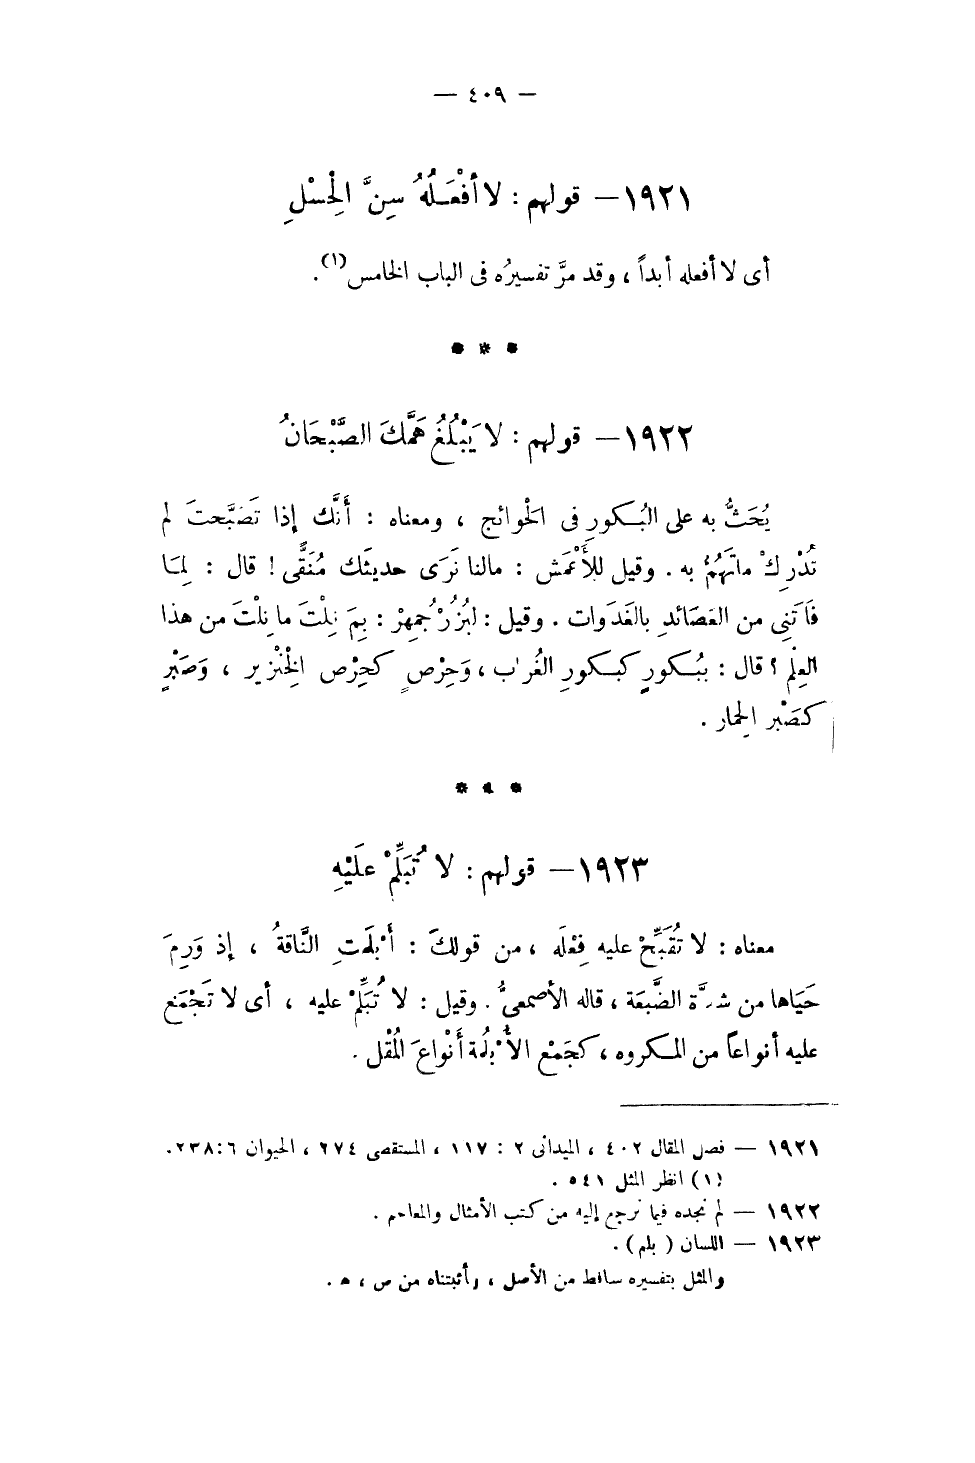 — ٤٠٩ —
١٩٢١ — قولهم : لا أَفْعَـلُهُ سِنَّ الْحِسْلِ
أى لا أفعله أبداً ، وقد مرَّ تفسيرُه فى الباب الخامس(١) .
* * *
١٩٢٢ — قولهم : لا يَبْلُغُ هَمَّكَ الصَّبْحَانُ
يُحَثُّ به على البُـكورِ فى الحْوائج ، ومعناه : أَنَّك إذا تَصَبَّحتَ لم
تُدْرِكْ ماتَهُمُّ به . وقيل للأَعْمَش : مالنا نَرَى حديثَك مُنَقًّى ! قال : لِمَـا
فَاتَنِى من العَصَائدِ بالغَدَوات . وقيل : لبُزُرْجُمِهرْ : بِمَ نِلْتَ ما نِلْتَ من هذا
العِلْمِ ؟ قال : ببُـكورٍ كبـكورِ الغُراب ، وَحِرْصٍ كحِرْص الْخِنْزير ، وَصَبْرٍ
كصَبْر الحِمار .
* * *
١٩٢٣ — قولهم : لا تُبَلِّمْ عَلَيْهِ
معناه : لا تُقَبِّحْ عليه فِعْلَه ، من قولكَ : أَبْلَمَتِ النَّاقةُ ، إذ وَرِمَ
حَيَاها من شدَّة الضَّبَعَة ، قاله الأصمعىُّ . وقيل : لا تُبَلِّمْ عليه ، أى لا تَجْمَع
عليه أنواعاً من المـكروه ، كجَمْع الأُبْلُمة أَنْواعَ الُمْقل .
١٩٢١ — فصل المقال ٤٠٢ ، الميدانى ٢ : ١١٧ ، المستقصى ٢٧٤ ، الحيوان ٦ : ٢٣٨.
(١) انظر المثل ٥٤١ .
١٩٢٢ — لم نجده فيما نرجع إليه من كتب الأمثال والمعاجم .
١٩٢٣ — اللسان ( بلم ) .
والمثل بتفسيره ساقط من الأصل ، وأثبتناه من ص ، ه .